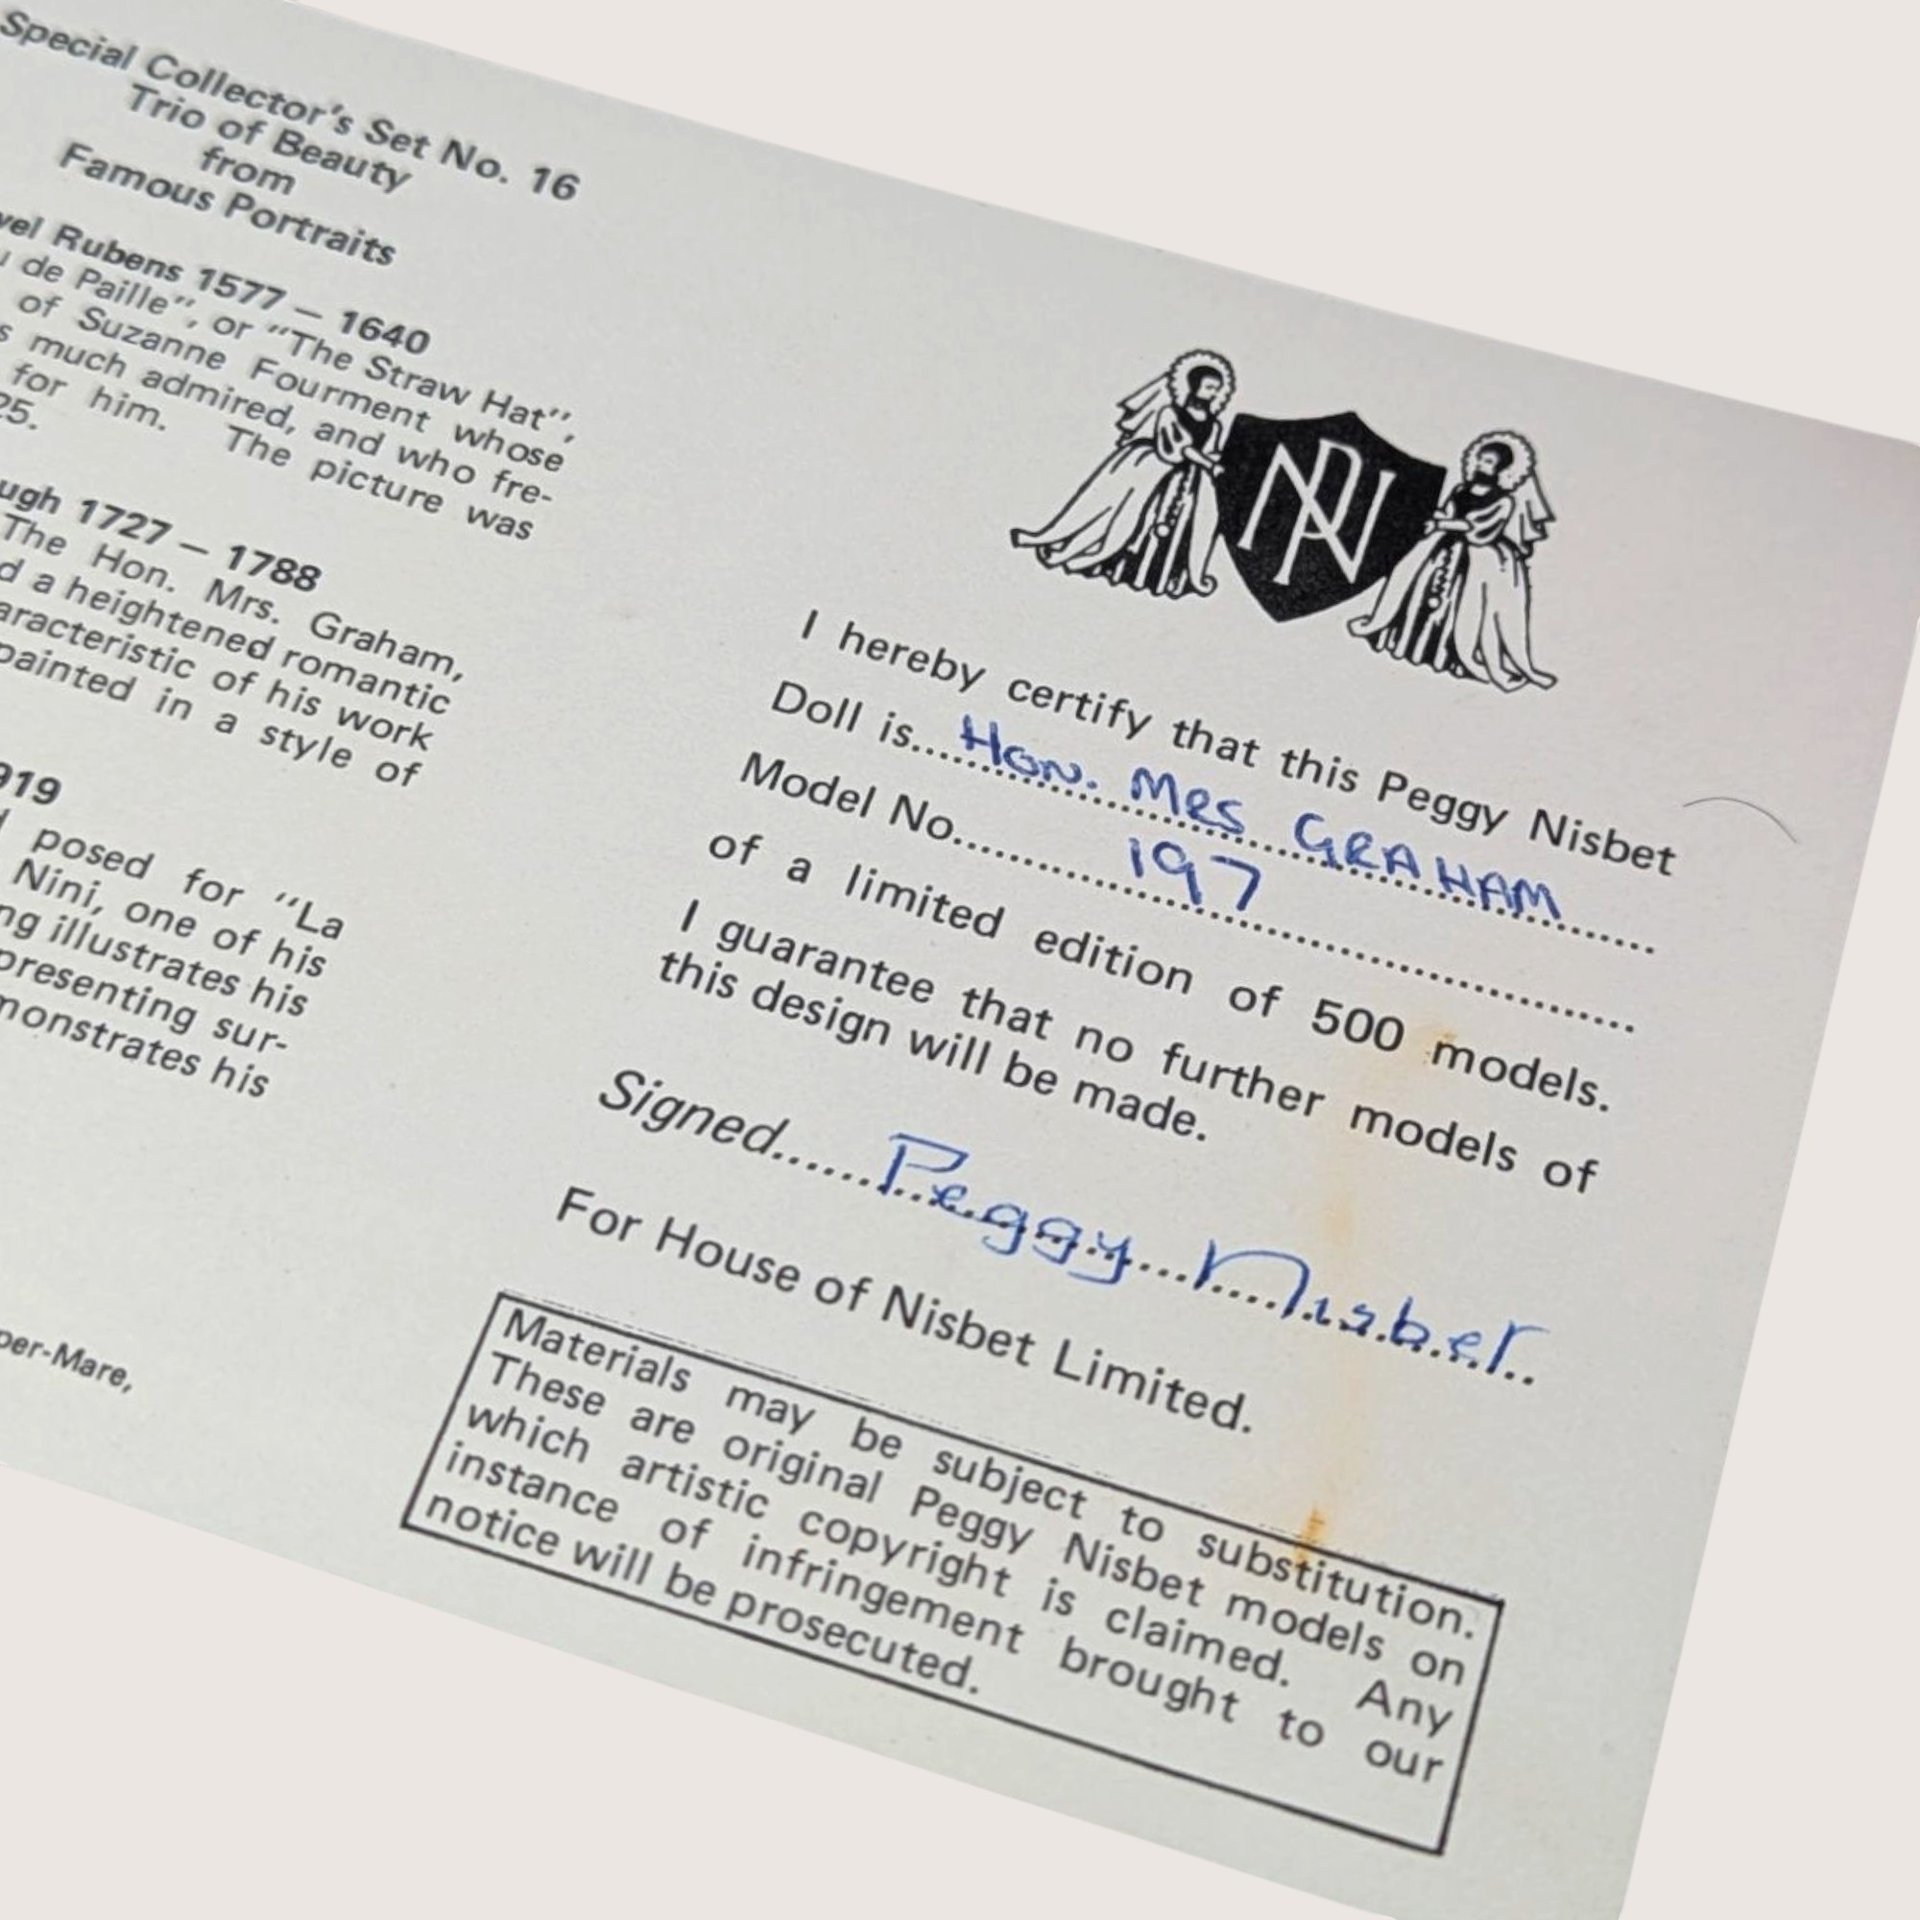 Special Collector's Set No. 16
Trio of Beauty
from
Famous Portraits
Rubens 1577 – 1640
de Paille", or "The Straw Hat",
of Suzanne Fourment whose
much admired, and who fre-
for him. The picture was
25.
1727 – 1788
The Hon. Mrs. Graham,
a heightened romantic
of his work
painted in a style of
posed for "La
Nini, one of his
illustrates his
presenting sur-
his
per-Mare,
PN
I hereby certify that this Peggy Nisbet
Doll is....Hon. MRS GRAHAM....
Model No.....197....
of a limited edition of 500 models.
I guarantee that no further models of
this design will be made.
Signed......Peggy Nisbet..
For House of Nisbet Limited.
Materials may be subject to substitution.
These are original Peggy Nisbet models on
which artistic copyright is claimed. Any
instance of infringement brought to our
notice will be prosecuted.